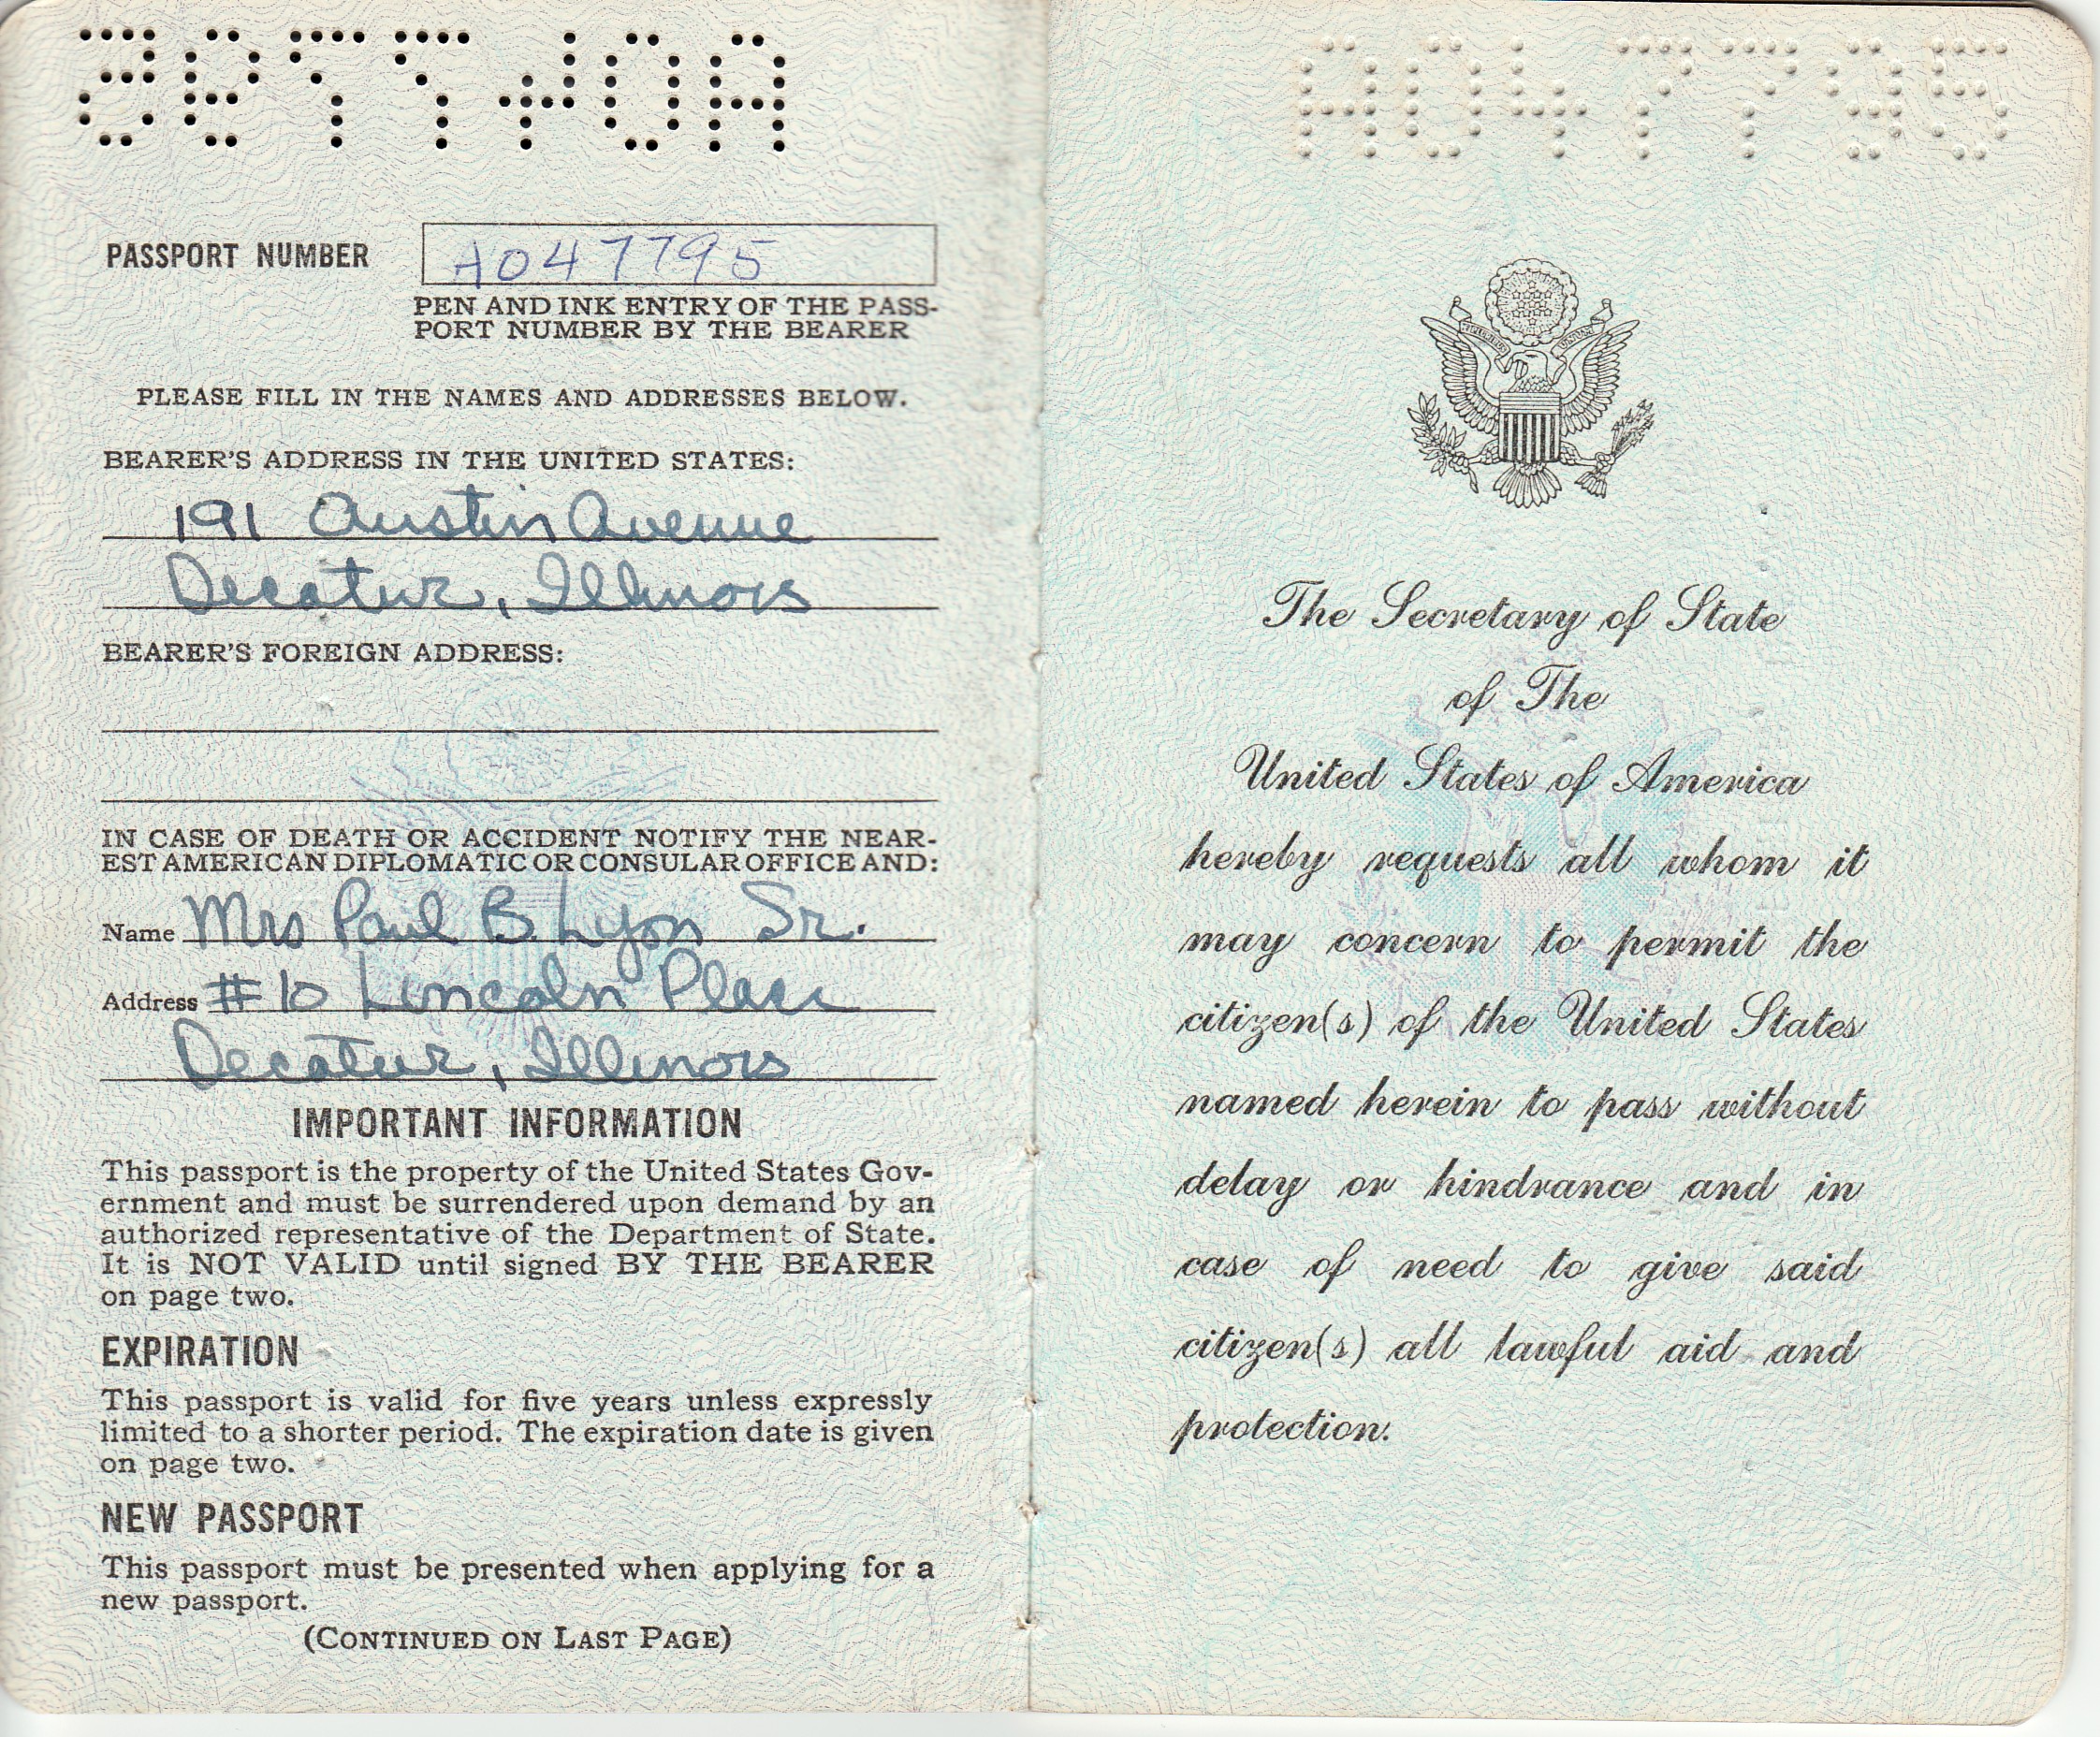 A047795
PASSPORT NUMBER A047795
PEN AND INK ENTRY OF THE PASS-
PORT NUMBER BY THE BEARER
PLEASE FILL IN THE NAMES AND ADDRESSES BELOW.
BEARER'S ADDRESS IN THE UNITED STATES:
191 Austin Avenue
Decatur, Illinois
BEARER'S FOREIGN ADDRESS:
IN CASE OF DEATH OR ACCIDENT NOTIFY THE NEAR-
EST AMERICAN DIPLOMATIC OR CONSULAR OFFICE AND:
Name Mrs Paul B. Lyon Sr.
Address #10 Lincoln Place
Decatur, Illinois
IMPORTANT INFORMATION
This passport is the property of the United States Gov-
ernment and must be surrendered upon demand by an
authorized representative of the Department of State.
It is NOT VALID until signed BY THE BEARER
on page two.
EXPIRATION
This passport is valid for five years unless expressly
limited to a shorter period. The expiration date is given
on page two.
NEW PASSPORT
This passport must be presented when applying for a
new passport.
(CONTINUED ON LAST PAGE)
A047795
The Secretary of State
of The
United States of America
hereby requests all whom it
may concern to permit the
citizen(s) of the United States
named herein to pass without
delay or hindrance and in
case of need to give said
citizen(s) all lawful aid and
protection.